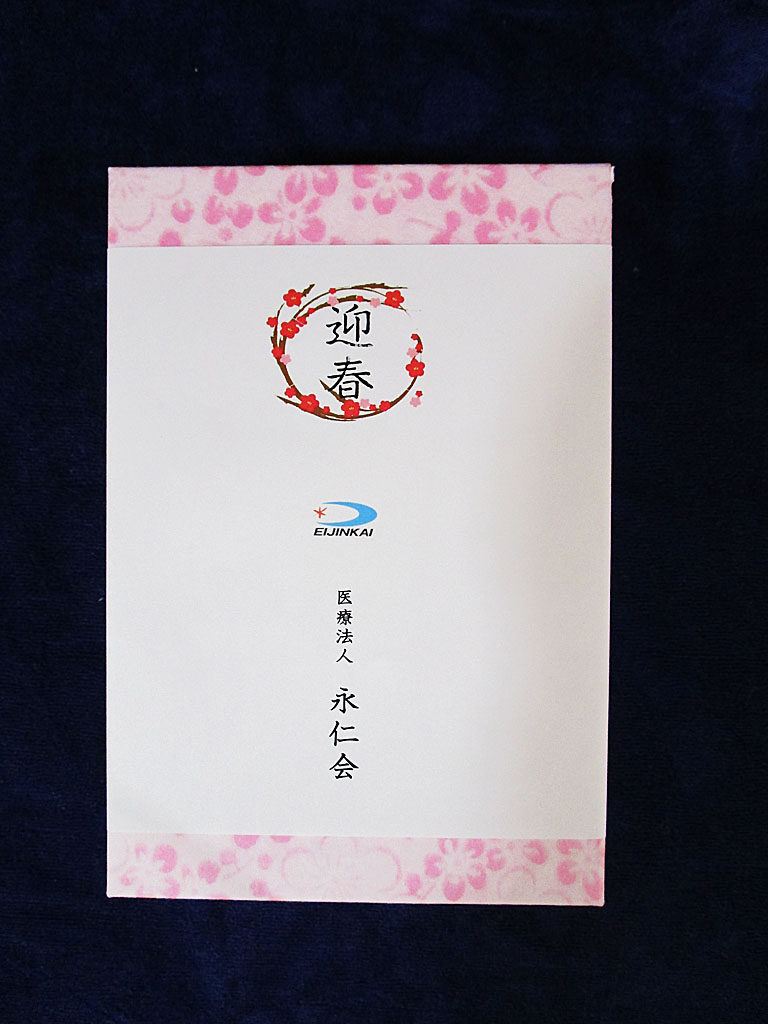 迎春
EIJINKAI
医療法人 永仁会